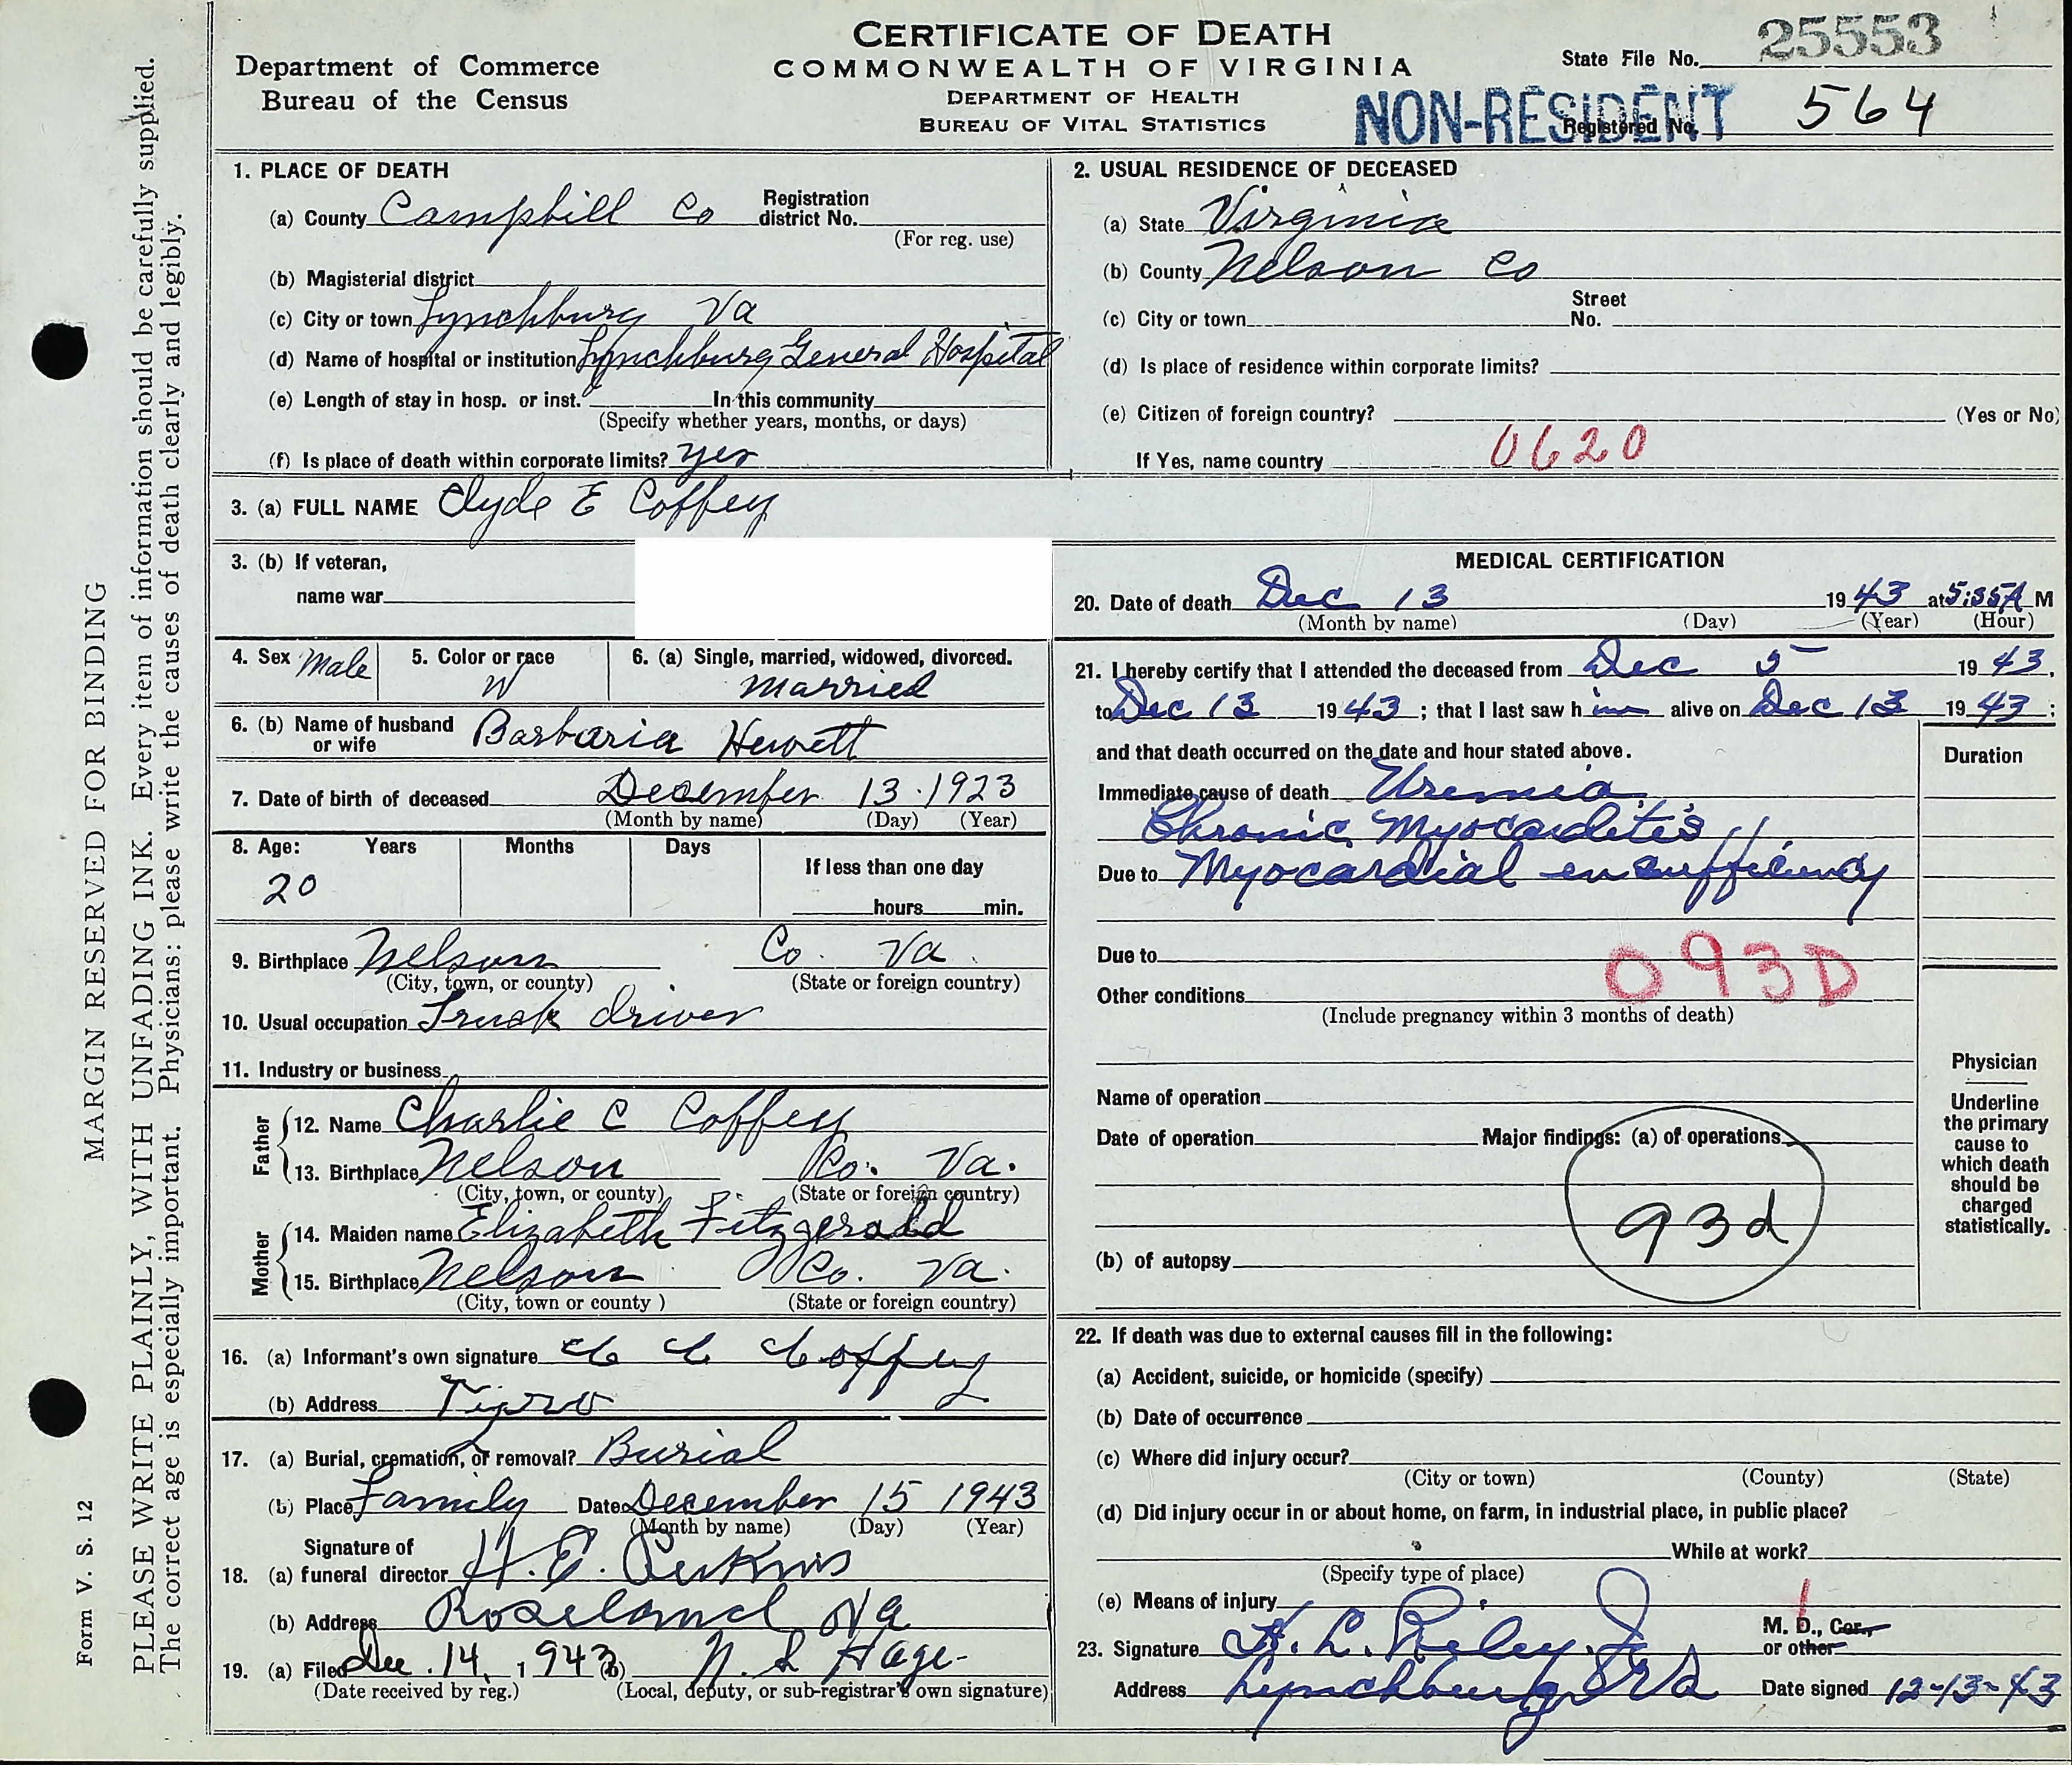 CERTIFICATE OF DEATH
COMMONWEALTH OF VIRGINIA
DEPARTMENT OF HEALTH
BUREAU OF VITAL STATISTICS
Department of Commerce
Bureau of the Census
State File No. 25553
NON-RESIDENT
Registered No. 564
MARGIN RESERVED FOR BINDING
PLEASE WRITE PLAINLY, WITH UNFADING INK. Every item of information should be carefully supplied.
The correct age is especially important. Physicians: please write the causes of death clearly and legibly.
Form V. S. 12
1. PLACE OF DEATH
(a) County Campbill Co Registration district No.
(For reg. use)
(b) Magisterial district
(c) City or town Lynchburg Va
(d) Name of hospital or institution Lynchburg General Hospital
(e) Length of stay in hosp. or inst. In this community
(Specify whether years, months, or days)
(f) Is place of death within corporate limits? yes
2. USUAL RESIDENCE OF DECEASED
(a) State Virginia
(b) County Nelson Co
(c) City or town Street No.
(d) Is place of residence within corporate limits?
(e) Citizen of foreign country? (Yes or No)
If Yes, name country 0620
3. (a) FULL NAME Clyde E Coffey
3. (b) If veteran,
name war
4. Sex Male 5. Color or race W 6. (a) Single, married, widowed, divorced. Married
6. (b) Name of husband or wife Barbaria Hewett
7. Date of birth of deceased December 13 1923
(Month by name) (Day) (Year)
8. Age: Years Months Days If less than one day
20 hours min.
9. Birthplace Nelson Co. Va.
(City, town, or county) (State or foreign country)
10. Usual occupation Truck driver
11. Industry or business
Father
12. Name Charlie C Coffey
13. Birthplace Nelson Co. Va.
(City, town, or county) (State or foreign country)
Mother
14. Maiden name Elizabeth Fitzgerald
15. Birthplace Nelson Co. Va.
(City, town or county ) (State or foreign country)
16. (a) Informant's own signature C C Coffey
(b) Address Tyro
17. (a) Burial, cremation, or removal? Burial
(b) Place Family Date December 15 1943
(Month by name) (Day) (Year)
18. (a) Signature of funeral director H. E. Perkins
(b) Address Roseland Va
19. (a) Filed Dec. 14, 1943 (b) N. S. Hage
(Date received by reg.) (Local, deputy, or sub-registrar's own signature)
MEDICAL CERTIFICATION
20. Date of death Dec 13 1943 at 5:55 A M
(Month by name) (Day) (Year) (Hour)
21. I hereby certify that I attended the deceased from Dec 5 1943,
to Dec 13 1943; that I last saw him alive on Dec 13 1943;
and that death occurred on the date and hour stated above.
Duration
Immediate cause of death Uremia
Chronic Myocarditis
Due to Myocardial ensufficiency
Due to
093D
Other conditions
(Include pregnancy within 3 months of death)
Name of operation
Date of operation Major findings: (a) of operations
93d
(b) of autopsy
Physician
Underline
the primary
cause to
which death
should be
charged
statistically.
22. If death was due to external causes fill in the following:
(a) Accident, suicide, or homicide (specify)
(b) Date of occurrence
(c) Where did injury occur?
(City or town) (County) (State)
(d) Did injury occur in or about home, on farm, in industrial place, in public place?
While at work?
(Specify type of place)
(e) Means of injury
1
23. Signature H. L. Riley Jr M. D., Cor., or other
Address Lynchburg Va Date signed 12-13-43